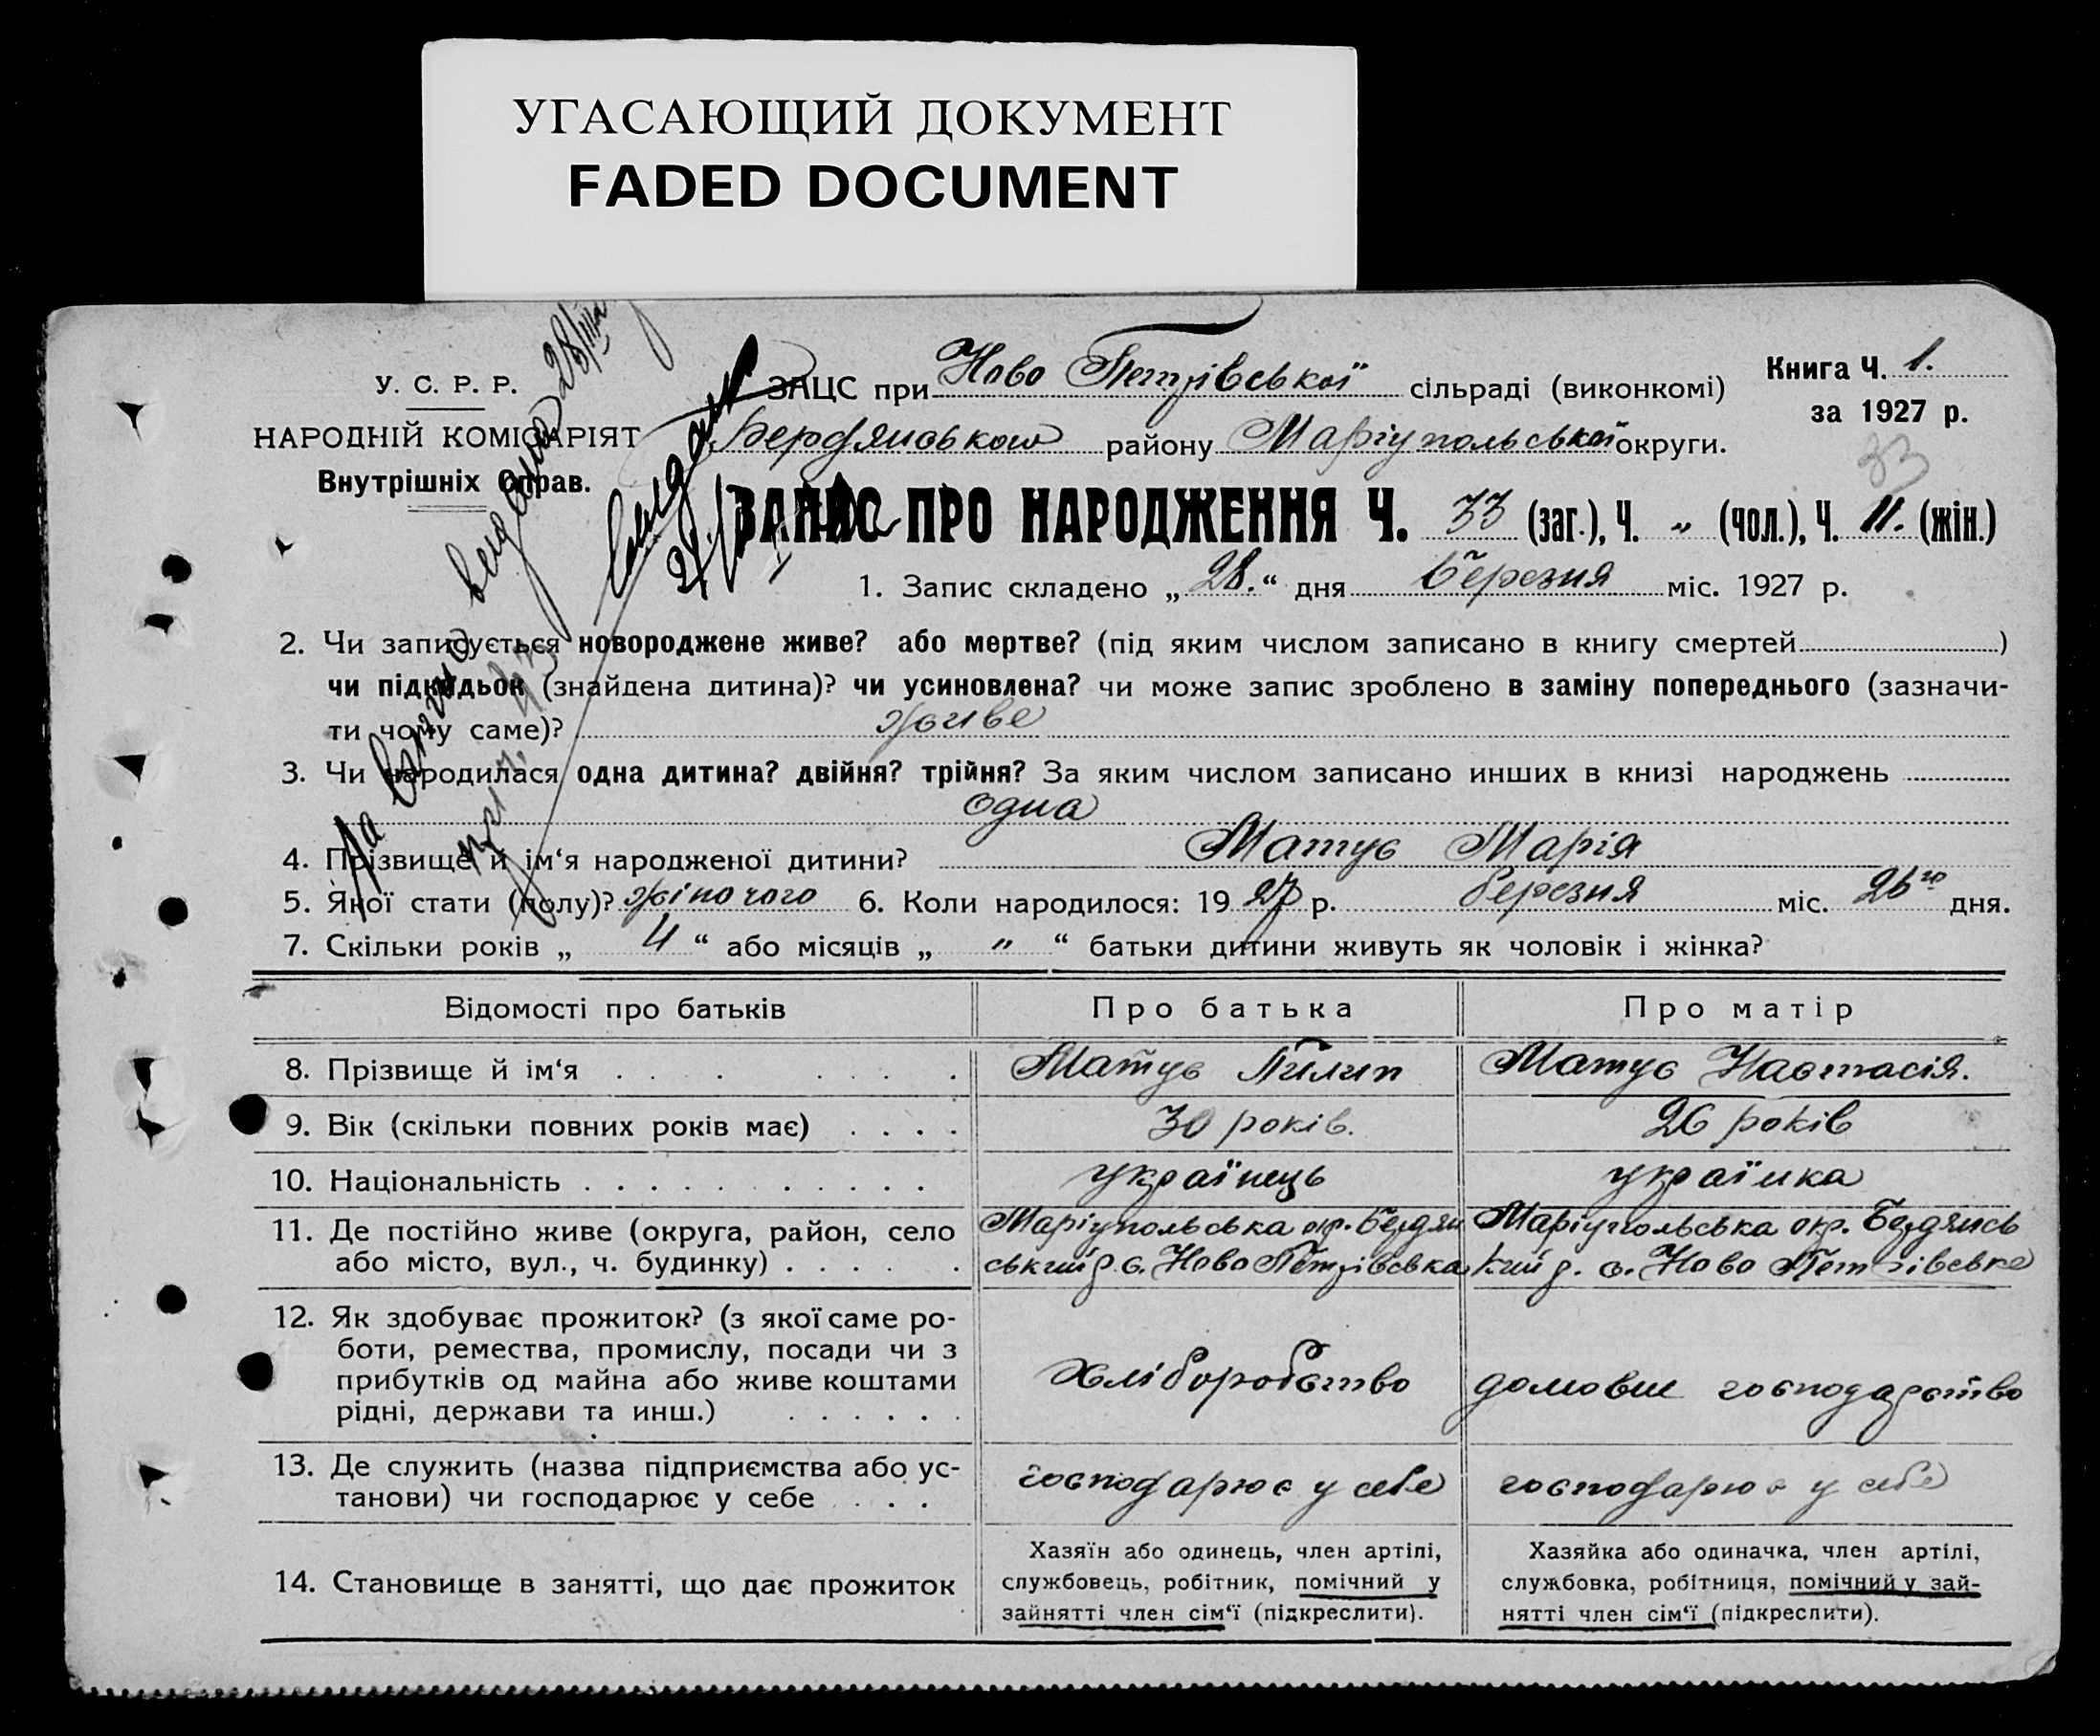 УГАСАЮЩИЙ ДОКУМЕНТ
FADED DOCUMENT
У. С. Р. Р.
НАРОДНІЙ КОМІСАРІЯТ
Внутрішніх Справ.
ЗАЦС при Ново Петрівської сільраді (виконкомі)
Бердянського району Маріупольської округи.
Книга Ч. 1.
за 1927 р.
33
ЗАПИС ПРО НАРОДЖЕННЯ Ч. 33 (заг.), Ч. „ (чол.), Ч. 11. (жін.)
1. Запис складено „28.“ дня березня міс. 1927 р.
2. Чи записується новороджене живе? або мертве? (під яким числом записано в книгу смертей )
чи підкидьок (знайдена дитина)? чи усиновлена? чи може запис зроблено в заміну попереднього (зазначи-
ти чому саме)? живе
3. Чи народилася одна дитина? двійня? трійня? За яким числом записано инших в книзі народжень
одна
4. Прізвище й ім‘я народженої дитини? Матус Марія
5. Якої стати (полу)? жіночого 6. Коли народилося: 19 27 р. березня міс. 26го дня.
7. Скільки років „ 4 “ або місяців „ „ “ батьки дитини живуть як чоловік і жінка?
Відомості про батьків Про батька Про матір
8. Прізвище й ім‘я . . . . . . . Матус Пилип Матус Настасія.
9. Вік (скільки повних років має) . . . . 30 років. 26 років
10. Національність . . . . . . . . . . . українець українка
11. Де постійно живе (округа, район, село Маріупольська окр. Бердян Маріупольська окр. Бердянсь
або місто, вул., ч. будинку) . . . . . ський р. с. Ново Петрівська кий р. с. Ново Петрівська
12. Як здобуває прожиток? (з якої саме ро-
боти, ремества, промислу, посади чи з
прибутків од майна або живе коштами хліборобство домовне господарство
рідні, держави та инш.) . . . . . .
13. Де служить (назва підприємства або ус- господарює у себе господарює у себе
танови) чи господарює у себе . . . .
14. Становище в занятті, що дає прожиток
Хазяїн або одинець, член артілі,
службовець, робітник, помічний у
зайнятті член сім‘ї (підкреслити).
Хазяйка або одиначка, член артілі,
службовка, робітниця, помічний у зай-
нятті член сім‘ї (підкреслити).